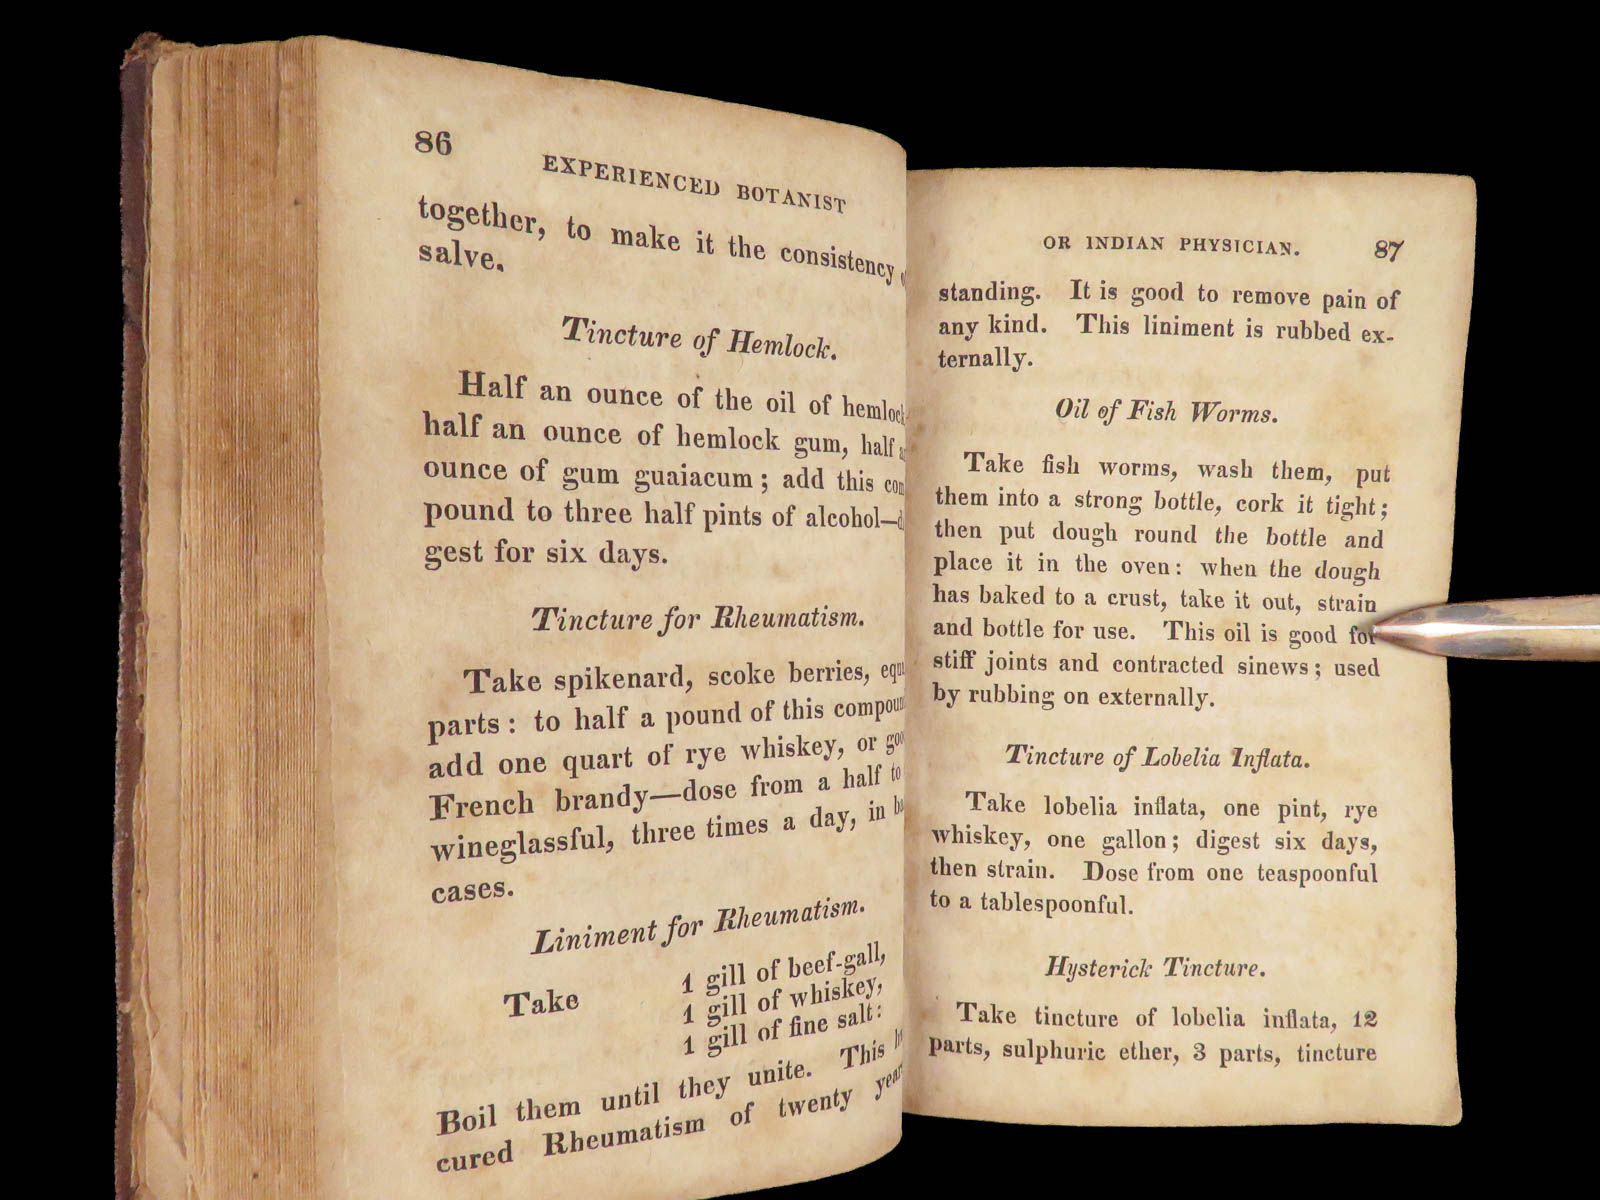 86
EXPERIENCED BOTANIST
together, to make it the consistency
salve.
Tincture of Hemlock.
Half an ounce of the oil of hemlock
half an ounce of hemlock gum, half
ounce of gum guaiacum; add this com
pound to three half pints of alcohol—di
gest for six days.
Tincture for Rheumatism.
Take spikenard, scoke berries, equ
parts: to half a pound of this compoun
add one quart of rye whiskey, or goo
French brandy—dose from a half to
wineglassful, three times a day, in ba
cases.
Liniment for Rheumatism.
1 gill of beef-gall,
Take 1 gill of whiskey,
1 gill of fine salt:
Boil them until they unite. This
cured Rheumatism of twenty year
OR INDIAN PHYSICIAN.
87
standing. It is good to remove pain of
any kind. This liniment is rubbed ex-
ternally.
Oil of Fish Worms.
Take fish worms, wash them, put
them into a strong bottle, cork it tight;
then put dough round the bottle and
place it in the oven: when the dough
has baked to a crust, take it out, strain
and bottle for use. This oil is good for
stiff joints and contracted sinews; used
by rubbing on externally.
Tincture of Lobelia Inflata.
Take lobelia inflata, one pint, rye
whiskey, one gallon; digest six days,
then strain. Dose from one teaspoonful
to a tablespoonful.
Hysterick Tincture.
Take tincture of lobelia inflata, 12
parts, sulphuric ether, 3 parts, tincture